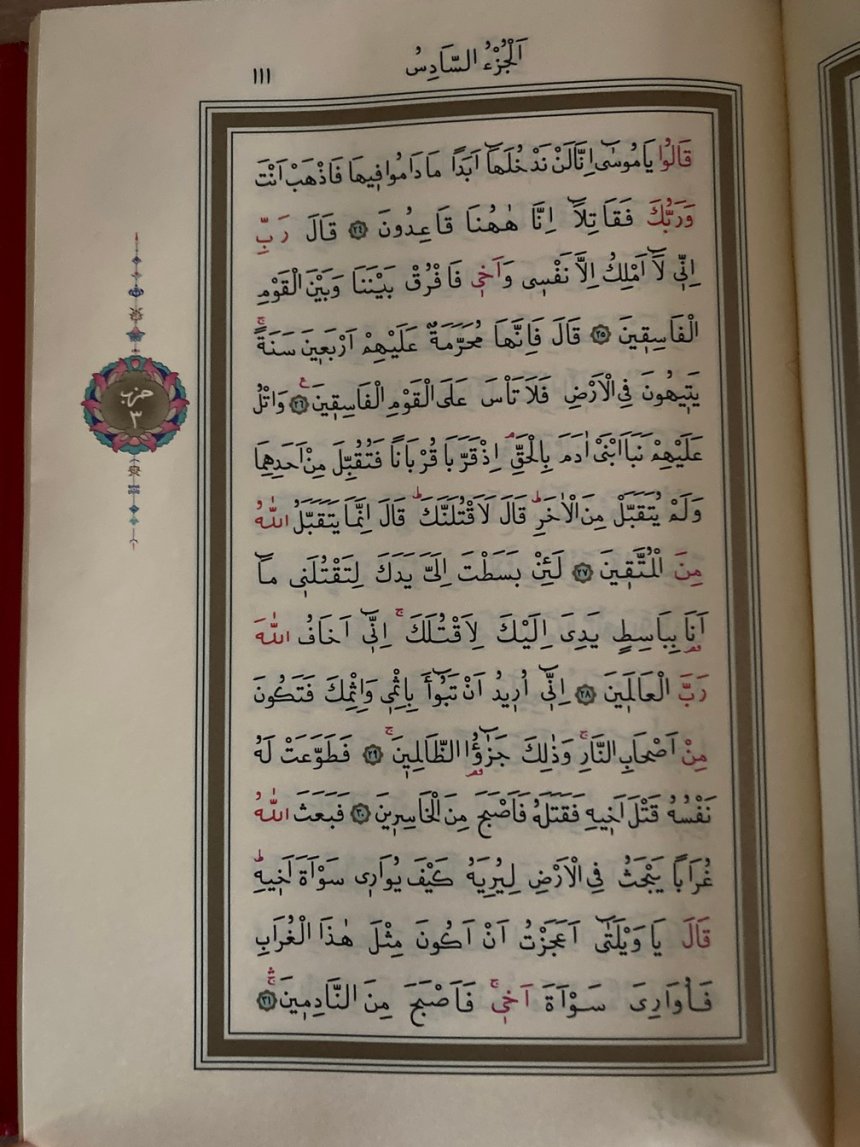 اَلْجُزْءُ السَّادِسُ
١١١
قَالُوا يَامُوسٰٓى اِنَّا لَنْ نَدْخُلَهَٓا اَبَدًا مَادَامُوا فٖيهَا فَاذْهَبْ اَنْتَ
وَرَبُّكَ فَقَاتِلَٓا اِنَّا هٰهُنَا قَاعِدُونَ ﴿٢٤﴾ قَالَ رَبِّ
اِنّٖى لَٓا اَمْلِكُ اِلَّا نَفْسٖى وَاَخٖى فَافْرُقْ بَيْنَنَا وَبَيْنَ الْقَوْمِ
الْفَاسِقٖينَ ﴿٢٥﴾ قَالَ فَاِنَّهَا مُحَرَّمَةٌ عَلَيْهِمْ اَرْبَعٖينَ سَنَةًۚ
يَتٖيهُونَ فِى الْاَرْضِ فَلَا تَاْسَ عَلَى الْقَوْمِ الْفَاسِقٖينَ ﴿٢٦﴾ وَاتْلُ
عَلَيْهِمْ نَبَاَ ابْنَىْ اٰدَمَ بِالْحَقِّۘ اِذْ قَرَّبَا قُرْبَانًا فَتُقُبِّلَ مِنْ اَحَدِهِمَا
وَلَمْ يُتَقَبَّلْ مِنَ الْاٰخَرِؕ قَالَ لَاَقْتُلَنَّكَؕ قَالَ اِنَّمَا يَتَقَبَّلُ اللّٰهُ
مِنَ الْمُتَّقٖينَ ﴿٢٧﴾ لَئِنْ بَسَطْتَ اِلَىَّ يَدَكَ لِتَقْتُلَنٖى مَٓا
اَنَا بِبَاسِطٍ يَدِىَ اِلَيْكَ لِاَقْتُلَكَۚ اِنّٖٓى اَخَافُ اللّٰهَ
رَبَّ الْعَالَمٖينَ ﴿٢٨﴾ اِنّٖٓى اُرٖيدُ اَنْ تَبُٓواَ بِاِثْمٖى وَاِثْمِكَ فَتَكُونَ
مِنْ اَصْحَابِ النَّارِۚ وَذٰلِكَ جَزٰٓؤُا الظَّالِمٖينَۚ ﴿٢٩﴾ فَطَوَّعَتْ لَهُ
نَفْسُهُ قَتْلَ اَخٖيهِ فَقَتَلَهُ فَاَصْبَحَ مِنَ الْخَاسِرٖينَ ﴿٣٠﴾ فَبَعَثَ اللّٰهُ
غُرَابًا يَبْحَثُ فِى الْاَرْضِ لِيُرِيَهُ كَيْفَ يُوَارٖى سَوْاَةَ اَخٖيهِؕ
قَالَ يَا وَيْلَتٰٓى اَعَجَزْتُ اَنْ اَكُونَ مِثْلَ هٰذَا الْغُرَابِ
فَاُوَارِىَ سَوْاَةَ اَخٖىۚ فَاَصْبَحَ مِنَ النَّادِمٖينَۚ ﴿٣١﴾
حزب
٣